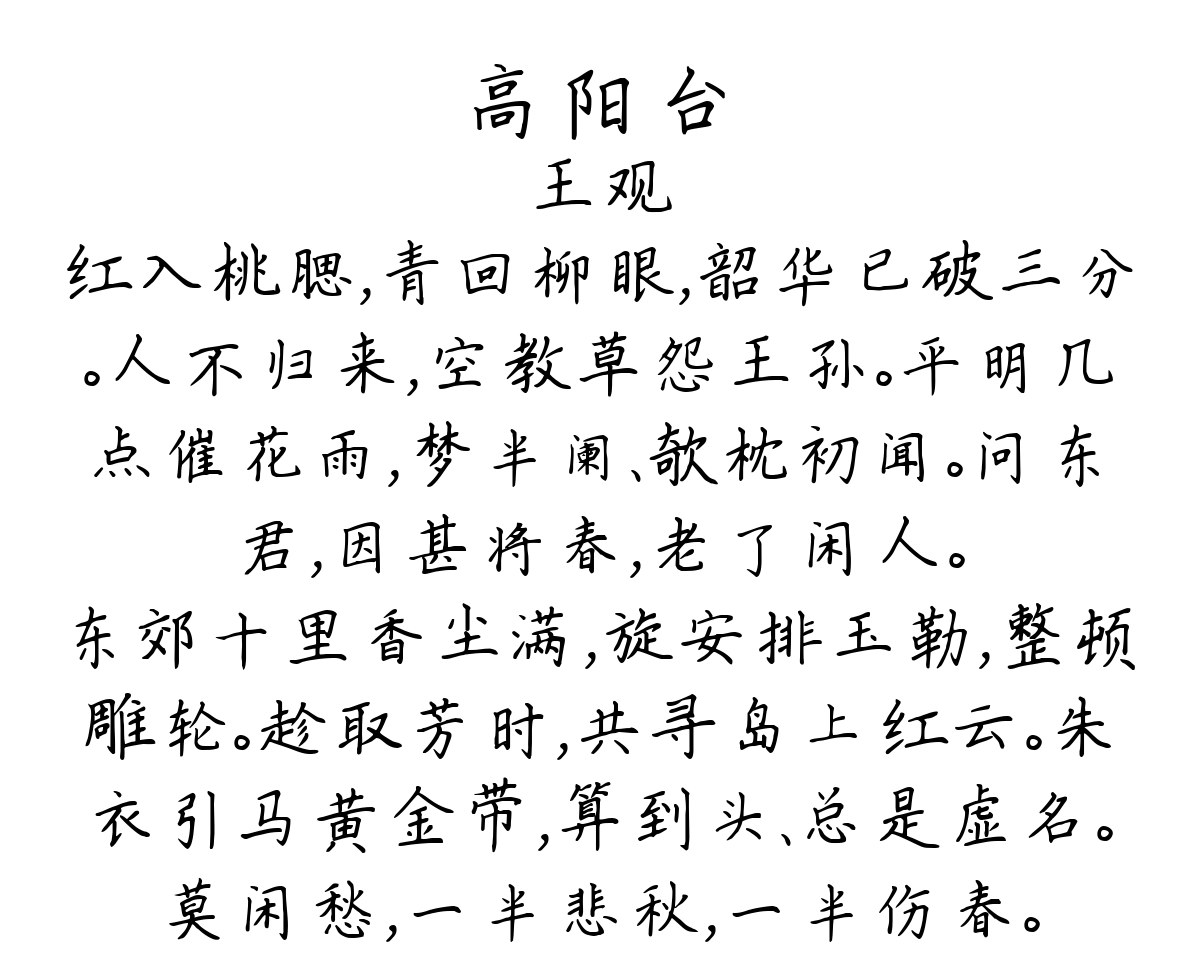 高阳台
王观
红入桃腮,青回柳眼,韶华已破三分
。人不归来,空教草怨王孙。平明几
点催花雨,梦半阑、欹枕初闻。问东
君,因甚将春,老了闲人。
东郊十里香尘满,旋安排玉勒,整顿
雕轮。趁取芳时,共寻岛上红云。朱
衣引马黄金带,算到头、总是虚名。
莫闲愁,一半悲秋,一半伤春。